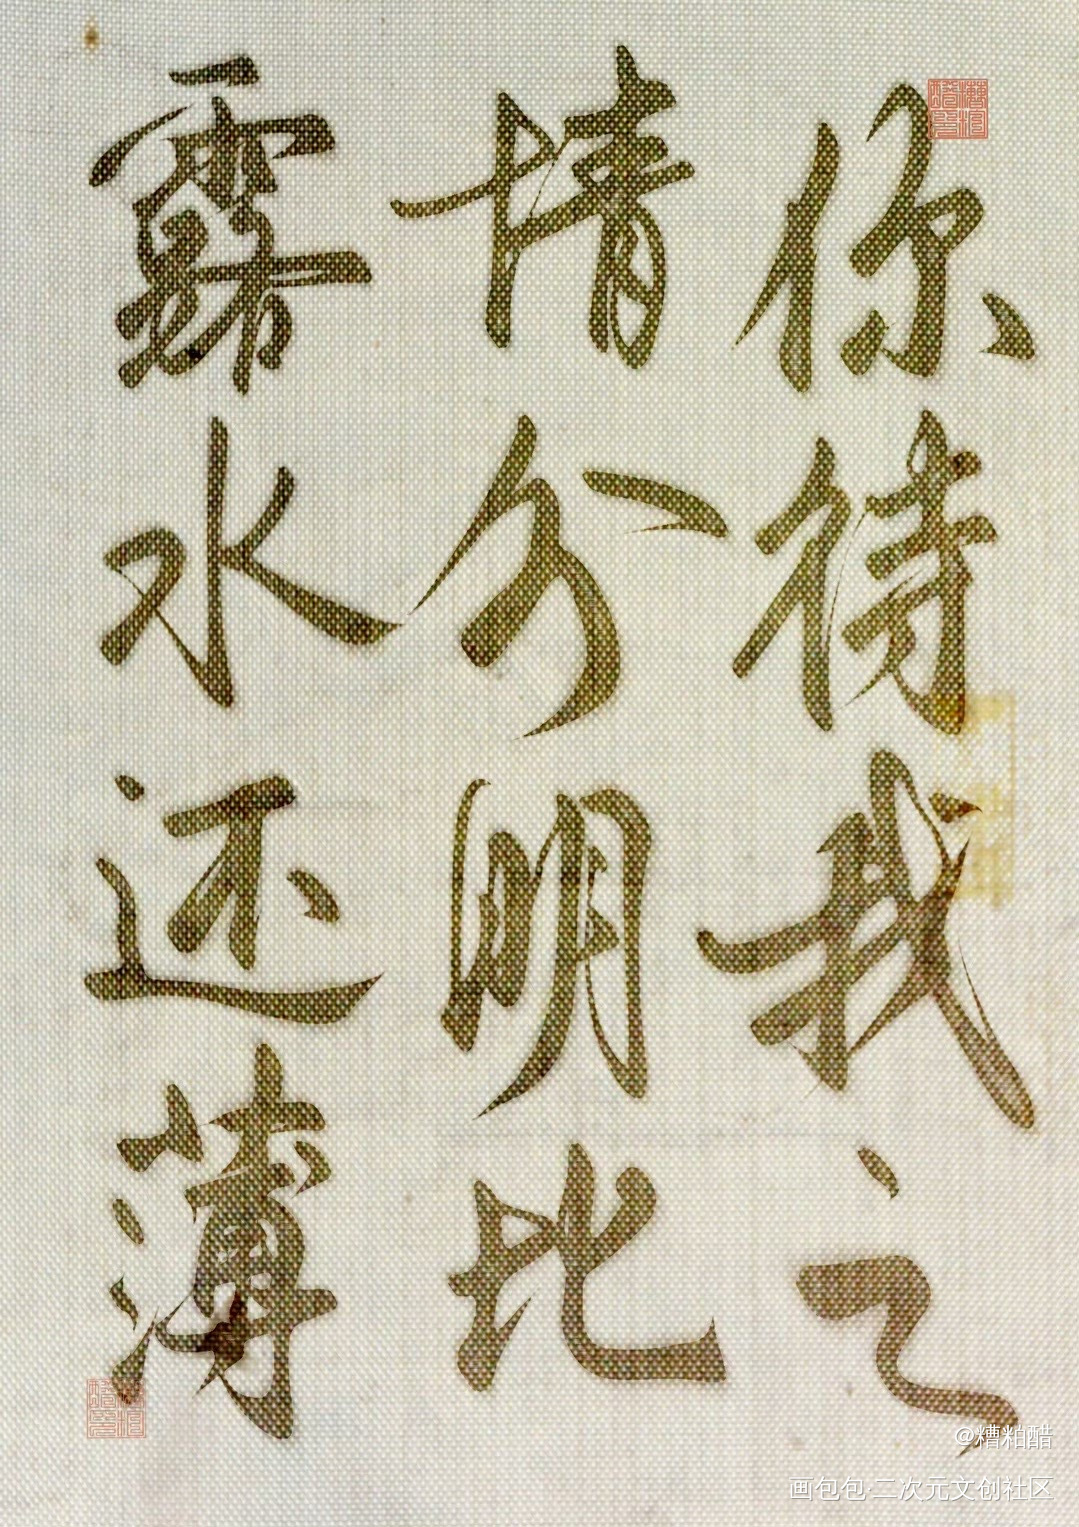 你待我之
情分明比
露水还薄
@糟粕醋
画包包·二次元文创社区